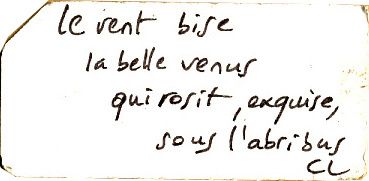 le vent bise
la belle venus
qui rosit, exquise,
sous l'abribus
CL